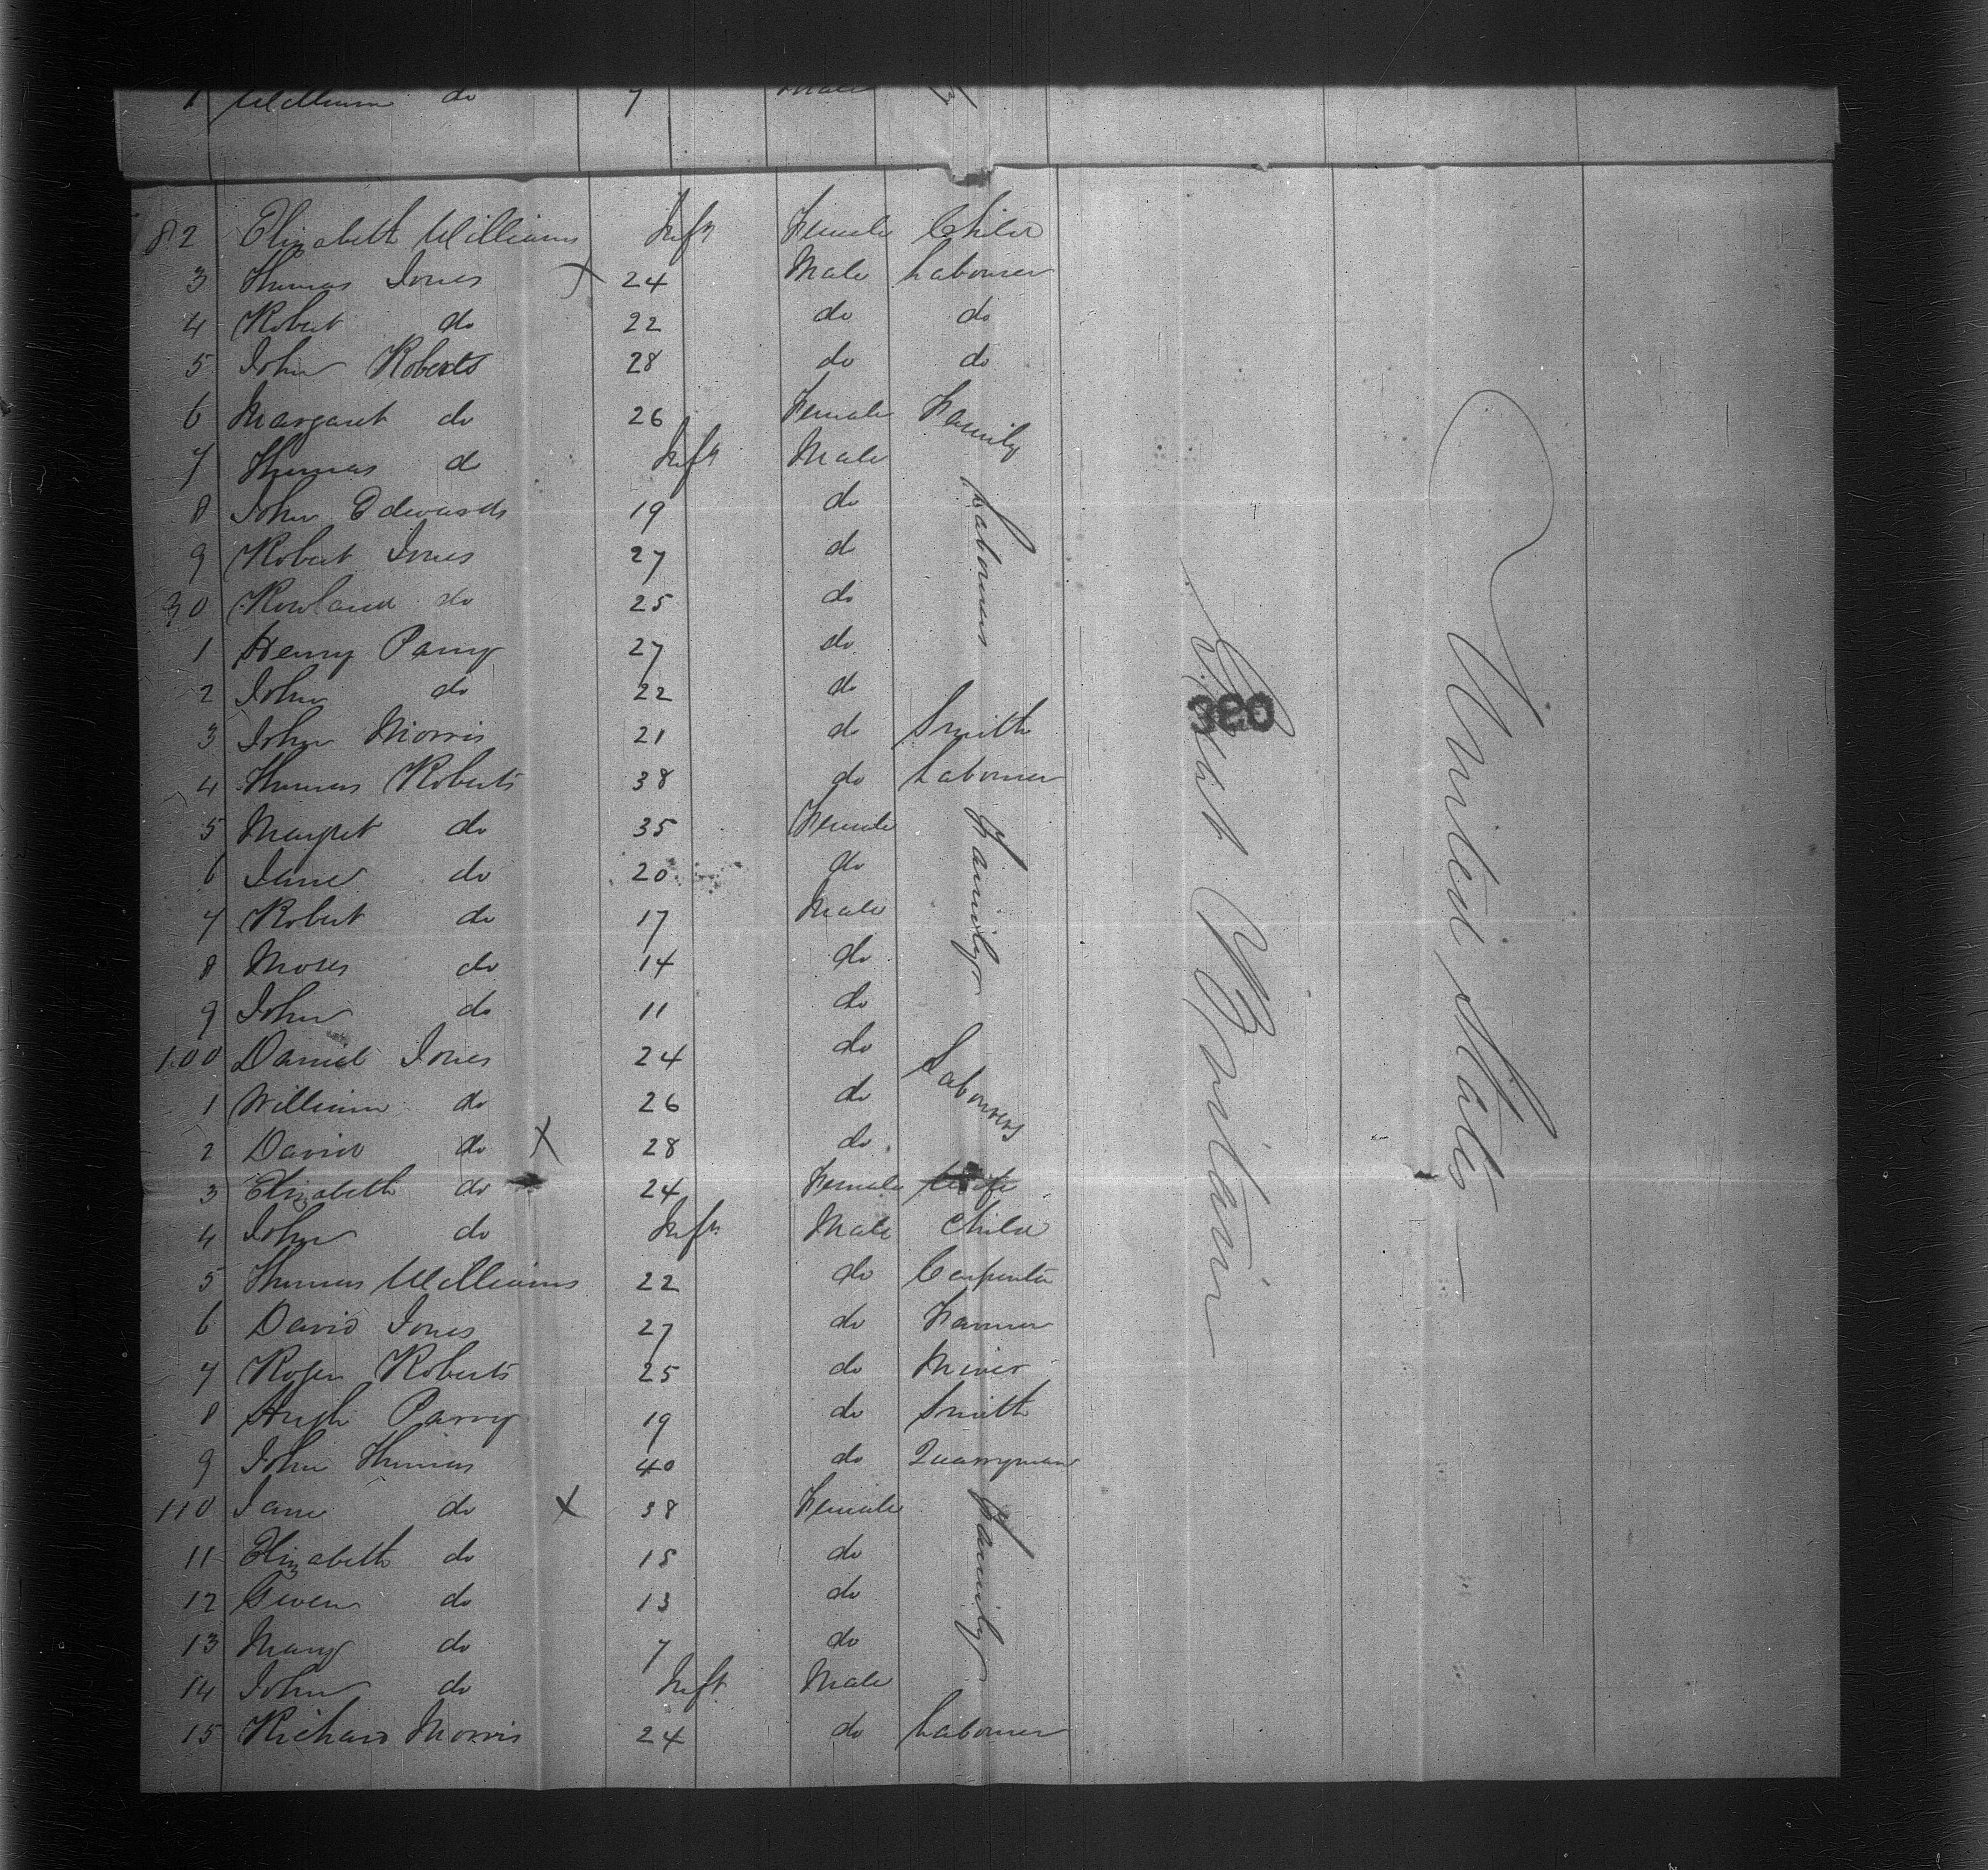 1 William do 7 Male
82 Elizabeth Williams Inft Female Child
3 Thomas Jones X 24 Male Labourer
4 Robert do 22 do do
5 John Roberts 28 do do
6 Margaret do 26 Female Family
7 Thomas do Inft Male
8 John Edwards 19 do Labourers
9 Robert Jones 27 do
30 Rowland do 25 do
1 Henry Parry 27 do
2 John do 22 do
3 John Morris 21 do Smith
4 Thomas Roberts 38 do Labourer
5 Margret do 35 Female Family
6 Jane do 20 do
7 Robert do 17 Male
8 Moses do 14 do
9 John do 11 do
100 Daniel Jones 24 do Labourers
1 William do 26 do
2 David do X 28 do
3 Elizabeth do 24 Female Wife
4 John do Inft Male Child
5 Thomas Williams 22 do Carpenter
6 David Jones 27 do Farmer
7 Roger Roberts 25 do Miner
8 Hugh Parry 19 do Smith
9 John Thomas 40 do Quarryman
110 Jane do X 38 Female Family
11 Elizabeth do 15 do
12 Gwen do 13 do
13 Mary do 7 do
14 John do Inft Male
15 Richard Morris 24 do Labourer
Great Britain
380
United States